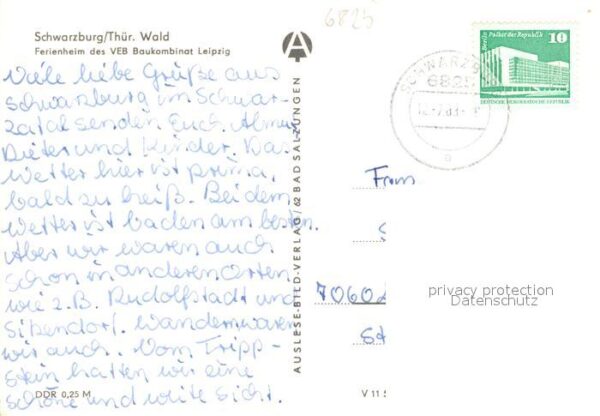 6825
Schwarzburg/Thür. Wald
Ferienheim des VEB Baukombinat Leipzig
Viele liebe Grüße aus
Schwarzburg im Schwar-
zatal senden Euch Almut
Dieter und Kinder. Das
Wetter hier ist prima,
bald zu heiß. Bei dem
Wetter ist baden am besten.
Aber wir waren auch
schon in anderen Orten
wie z.B. Rudolfstadt und
Sitzendorf. Wandern waren
wir auch. Vom Tripp-
stein hatten wir eine
schöne und weite Sicht.
DDR 0,25 M
AUSLESE-BILD-VERLAG/62 BAD SALZUNGEN
A
Berlin Palast der Republik
10
DEUTSCHE DEMOKRATISCHE REPUBLIK
SCHWARZB
682
a
Fam
S
7060
St
privacy protection
Datenschutz
V 11 5